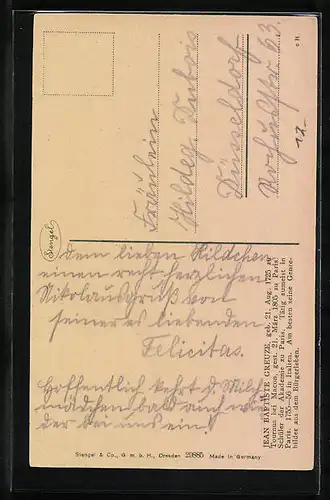 Fräulein
Hildeg. Dubois
Düsseldorf
Rochusstr 63.
17.-
Stengel
Dem lieben Hildchen
einen recht herzlichen
Nikolausgruß von
seiner es liebenden
Felicitas.
Hoffentlich kehrt d. Milch
mädchen bald auch wie
der bei uns ein!
JEAN BAPTISTE GREUZE, geb. 21. Aug. 1725 zu
Tournus bei Macon, gest. 21. März 1805 zu Paris.
Schüler der Akademie zu Paris. Tätig zumeist in
Paris, 1755—56 in Italien. Am besten seine Genre-
bilder aus dem Bürgerleben.
Stengel & Co., G. m. b. H., Dresden 29885 Made in Germany